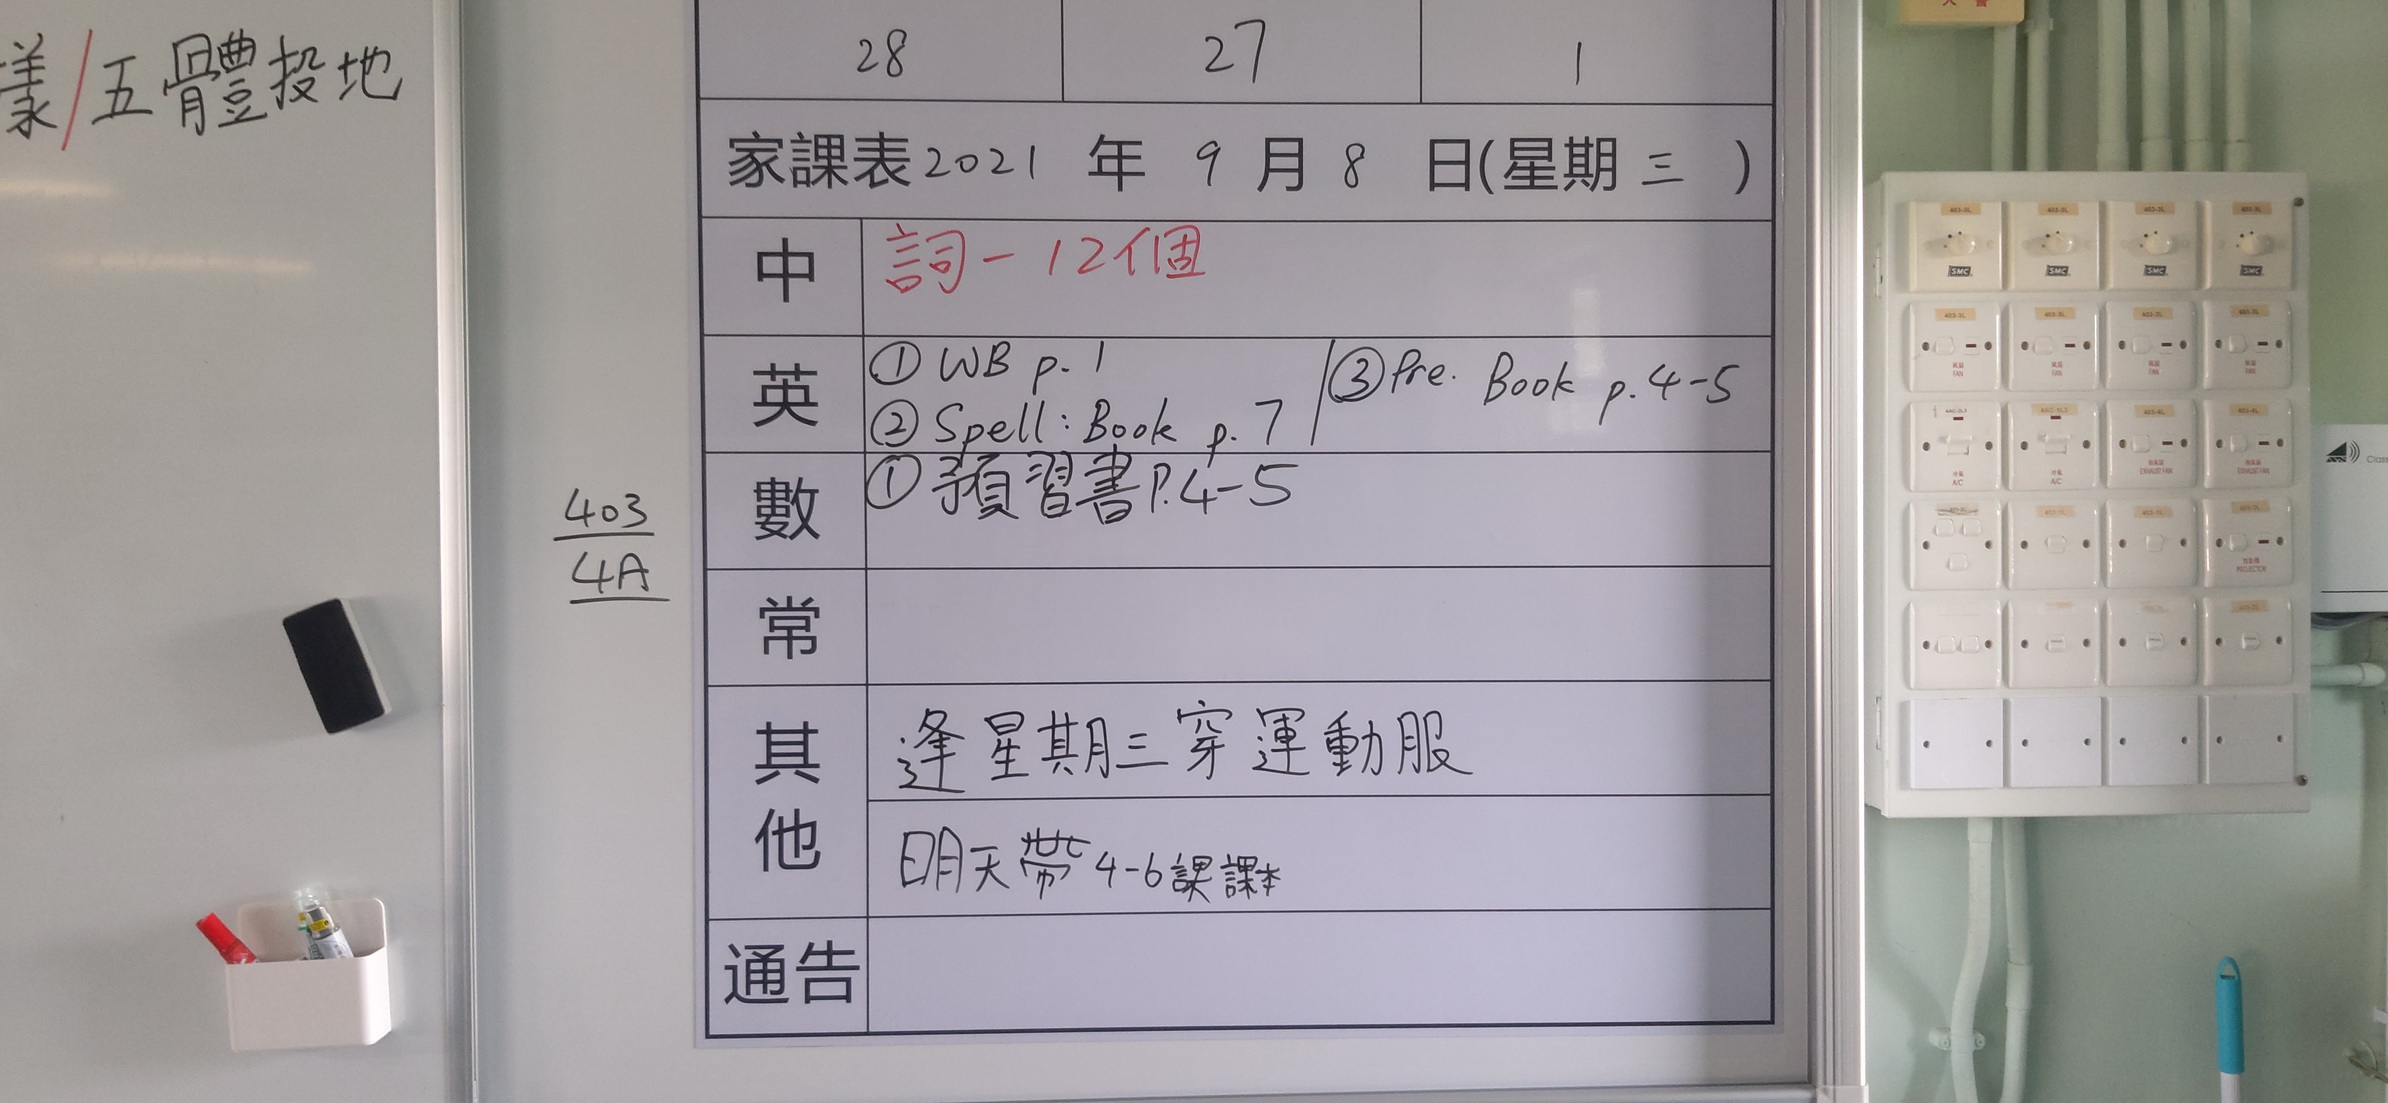 樣/五體投地
28 27 1
家課表2021 年 9 月 8 日(星期 三 )
中 詞-12個
英 ① WB p. 1 / ③ Pre. Book p. 4-5
② Spell: Book p. 7
數 ① 預習書P.4-5
常
其他 逢星期三穿運動服
明天帶4-6課課本
通告
403
4A
SMC SMC SMC SMC
FAN FAN FAN FAN
A/C A/C EXHAUST FAN EXHAUST FAN
PROJECTOR
Class